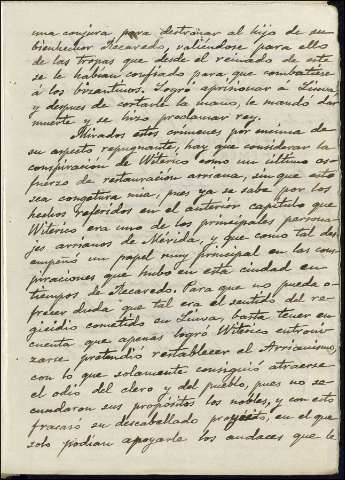 una conjura para destronar al hijo de su
bienhechor Recaredo, valiéndose para ello
de las tropas que desde el reinado de este
se le habían confiado para que combatiese
á los bizantinos. Logró aprisionar á Liuva
y despues de cortarle la mano, le mandó dar
muerte y se hizo proclamar rey.
Mirados estos crimenes por encima de
su aspecto repugnante, hay que considerar la
conspiración de Witerico como un último es-
fuerzo de restauración arriana, sin que esto
sea congetura mia, pues ya se sabe por los
hechos referidos en el anterior capitulo que
Witerico era uno de los principales persona-
jes arrianos de Mérida, y que como tal des-
empeñó un papel muy principal en las cons-
piraciones que hubo en esta ciudad en
tiempos de Recaredo. Para que no pueda o-
frecer duda que tal era el sentido del re-
gicidio cometido en Liuva, basta tener en
cuenta que apenas logró Witerico entroni-
zarse pretendió restablecer el Arrianismo,
con lo que solamente consiguió atraerse
el odio del clero y del pueblo, pues no se-
cundaron sus propósitos los nobles, y con esto
fracasó su descabellado proyecto, en el que
solo podian apoyarle los audaces que le